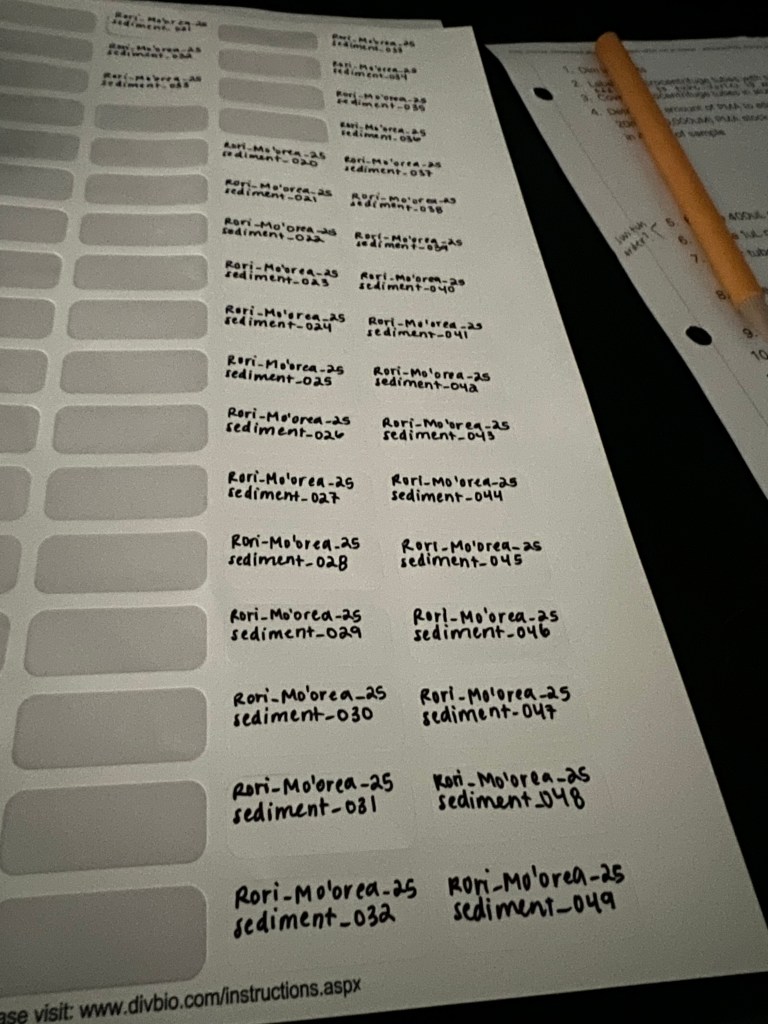 Rori-Mo'orea-25
Rori-Mo'orea-25
Rori-Mo'orea-25
sediment_033
Rori-Mo'orea-25
sediment_020
Rori-Mo'orea-25
sediment_021
Rori-Mo'orea-25
sediment_022
Rori-Mo'orea-25
sediment_023
Rori-Mo'orea-25
sediment_024
Rori-Mo'orea-25
sediment_025
Rori-Mo'orea-25
sediment_026
Rori-Mo'orea-25
sediment_027
Rori-Mo'orea-25
sediment_028
Rori-Mo'orea-25
sediment_029
Rori-Mo'orea-25
sediment_030
Rori-Mo'orea-25
sediment_031
Rori-Mo'orea-25
sediment_032
Rori-Mo'orea-25
sediment_033
Rori-Mo'orea-25
sediment_034
Rori-Mo'orea-25
sediment_035
Rori-Mo'orea-25
sediment_036
Rori-Mo'orea-25
sediment_037
Rori-Mo'orea-25
sediment_038
Rori-Mo'orea-25
sediment_039
Rori-Mo'orea-25
sediment_040
Rori-Mo'orea-25
sediment_041
Rori-Mo'orea-25
sediment_042
Rori-Mo'orea-25
sediment_043
Rori-Mo'orea-25
sediment_044
Rori-Mo'orea-25
sediment_045
Rori-Mo'orea-25
sediment_046
Rori-Mo'orea-25
sediment_047
Rori-Mo'orea-25
sediment_048
Rori-Mo'orea-25
sediment_049
visit: www.divbio.com/instructions.aspx
1.
2. Label
3.
4. amount of PMA to
PMA stock
of sample
switch
order?
5. 400uL
6. 1uL
7. tube
8.
9.
10.